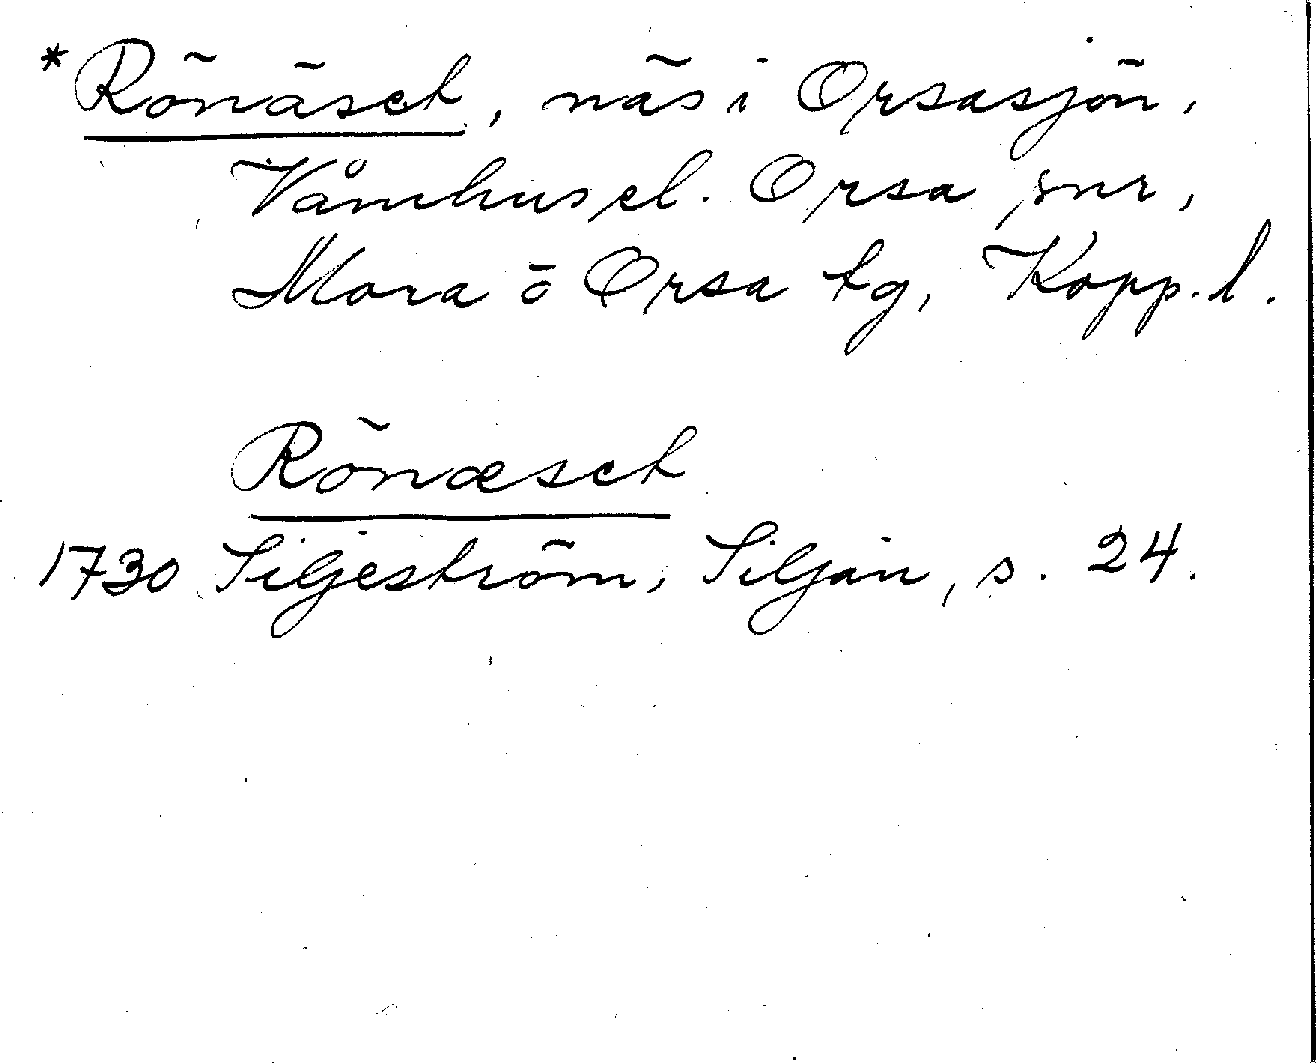 *Rönäset, näs i Orsasjön,
Våmhus el. Orsa snr,
Mora o Orsa tg, Kopp. l.
Rönæset
1730 Siljeström, Siljan, s. 24.